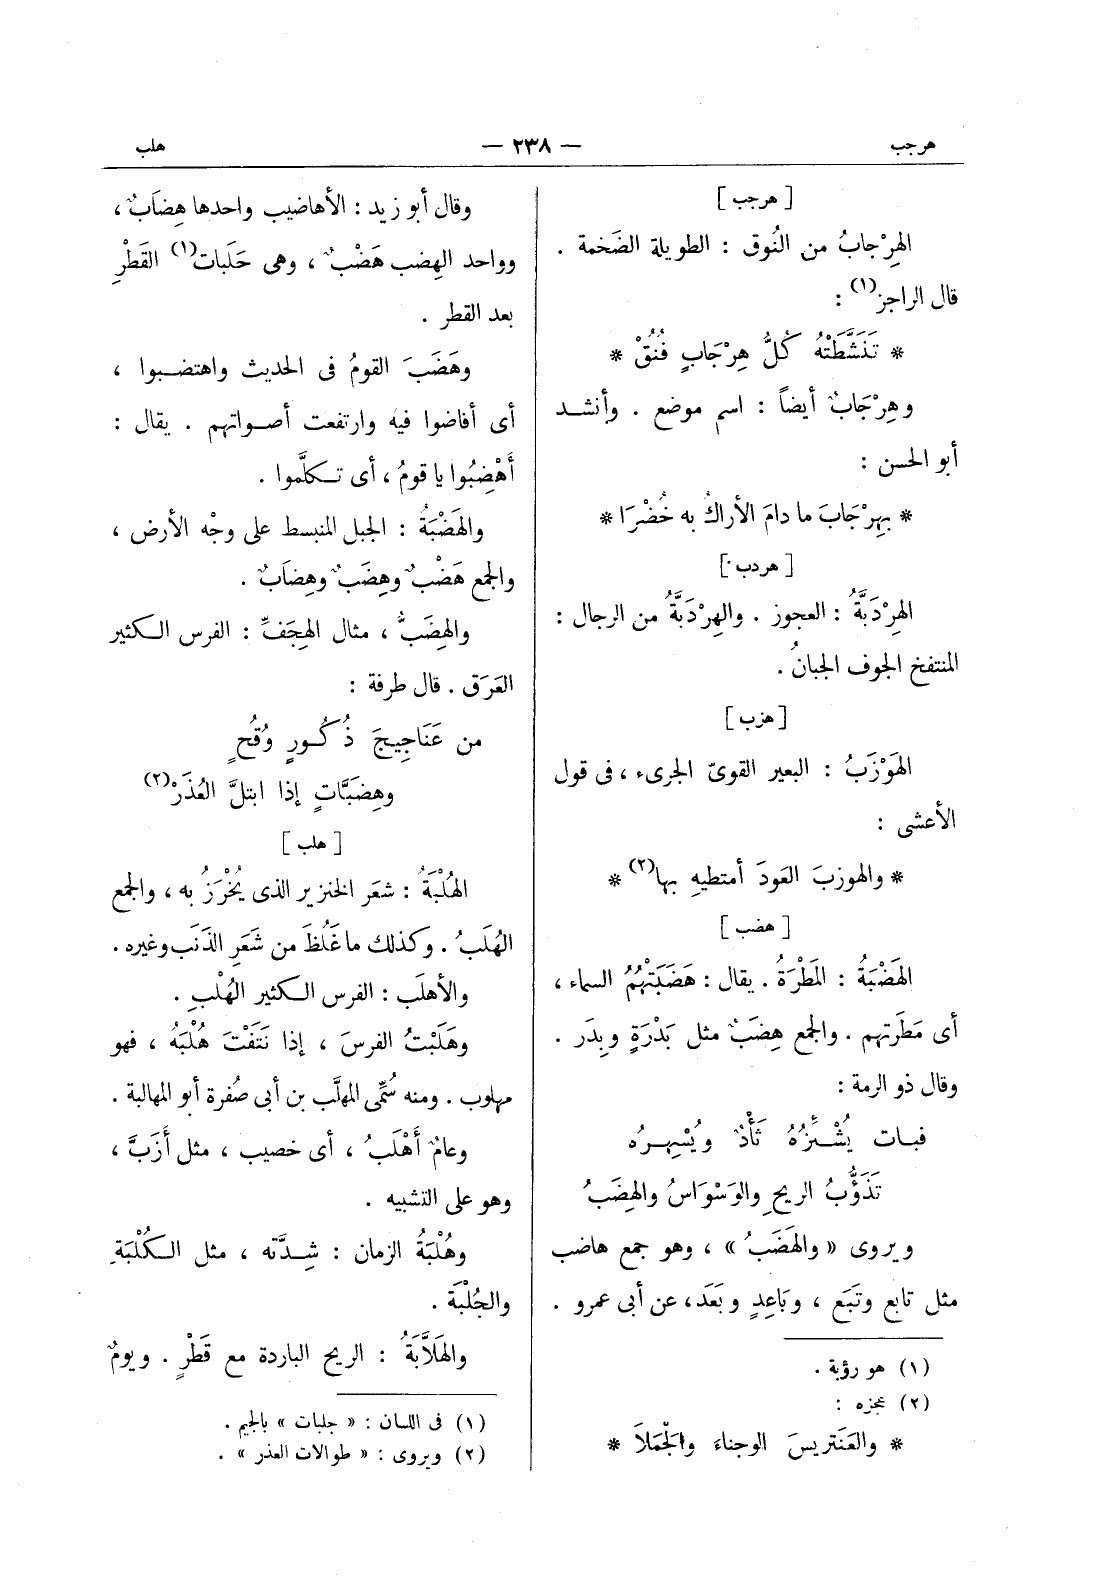 هرجب — ٢٣٨ — هلب
[ هرجب ]
الهِرْجابُ من النُوق : الطويلة الضَخمة .
قال الراجز(١) :
* تَنَشَّطَتْهُ كُلُّ هِرْجَابٍ فُنُقْ *
وهِرْجَابٌ أيضاً : اسم موضع . وأنشد
أبو الحسن :
* بِهِرْجَابَ ما دامَ الأراكُ به خُضْرَا *
[ هردب ]
الهِرْدَبَّةُ : العجوز . والهِرْدَبَّةُ من الرجال :
المنتفخ الجوف الجبانُ .
[ هزب ]
الهَوْزَبُ : البعير القوىّ الجرىء ، فى قول
الأعشى :
* والهوزبَ العَودَ أمتطيهِ بها(٢) *
[ هضب ]
الهَضْبَةُ : المَطْرَةُ . يقال : هَضَبَتْهُمُ السماء ،
أى مَطَرتهم . والجمع هِضَبٌ مثل بَدْرَةٍ وبِدَر .
وقال ذو الرمة :
فبات يُشْئِزُهُ ثَأْدٌ ويُسْهِرُه
تَذَؤُّبُ الريحِ والوَسْوَاسُ والهِضَبُ
ويروى « والهَضَبُ » ، وهو جمع هاضب
مثل تابع وتَبَع ، وبَاعِدٍ وبَعَد، عن أبى عمرو .
(١) هو رؤبة .
(٢) عجزه :
* والعَنتريسَ الوجناءَ والجَمَلَا *
وقال أبو زيد : الأهاضيب واحدها هِضَابٌ ،
وواحد الهِضب هَضْبٌ ، وهى حَلَبات(١) القَطْرِ
بعد القطر .
وهَضَبَ القومُ فى الحديث واهتضبوا ،
أى أفاضوا فيه وارتفعت أصواتهم . يقال :
أَهْضِبُوا يا قومُ ، أى تكلَّموا .
والهَضْبَةُ : الجبل المنبسط على وجْه الأرض ،
والجمع هَضْبٌ وهِضَبٌ وهِضَابٌ .
والهِضَبُّ ، مثال الهِجَفِّ : الفرس الكثير
العَرَق . قال طرفة :
من عَنَاجِيجَ ذُكُورٍ وُقُحٍ
وهِضَبَّاتٍ إذا ابتلَّ العُذَرْ(٢)
[ هلب ]
الهُلْبَةُ : شعَر الخنزير الذى يُخْرَزُ به ، والجمع
الهُلَبُ . وكذلك ما غَلُظَ من شَعَرِ الذَنَب وغيره .
والأهلَب : الفرس الكثير الهُلْبِ .
وهَلَبْتُ الفرسَ ، إذا نَتَفْتَ هُلْبَهُ ، فهو
مهلوب . ومنه سُمِّى المهلَّب بن أبى صُفرة أبو المهالبة .
وعامٌ أَهْلَبُ ، أى خصيب ، مثل أَزَبَّ ،
وهو على التشبيه .
وهُلْبَةُ الزمان : شِدَّته ، مثل الكُلْبَةِ
والجُلْبَة .
والهَلَّابَةُ : الريح الباردة مع قَطْرٍ . ويومٌ
(١) فى اللسان : « جلبات » بالجيم .
(٢) ويروى : « طوالات العذر » .